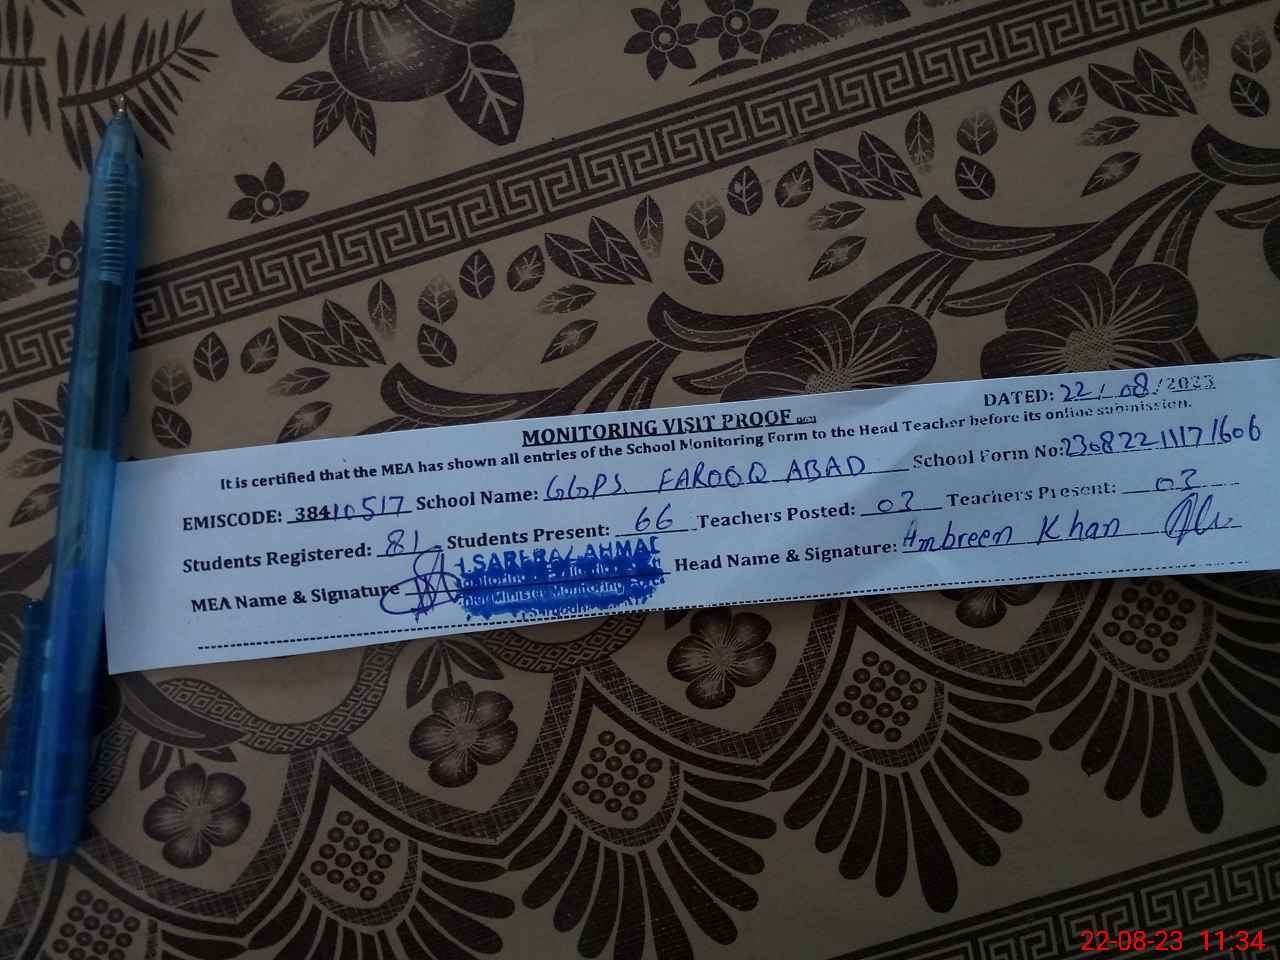 MONITORING VISIT PROOF
DATED: 22/08/2023
It is certified that the MEA has shown all entries of the School Monitoring Form to the Head Teacher before its online submission.
EMISCODE: 38410517 School Name: GGPS FAROOQ ABAD School Form No: 23082211171606
Students Registered: 81 Students Present: 66 Teachers Posted: 03 Teachers Present: 03
MEA Name & Signature SARFRAZ AHMAD Head Name & Signature: Ambreen Khan
Minister Monitoring
22-08-23 11:34